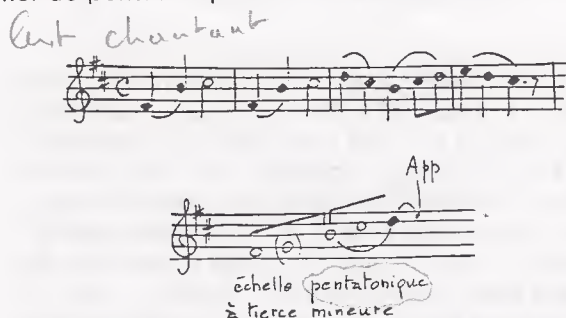 chantant
App
échelle pentatonique
à tierce mineure